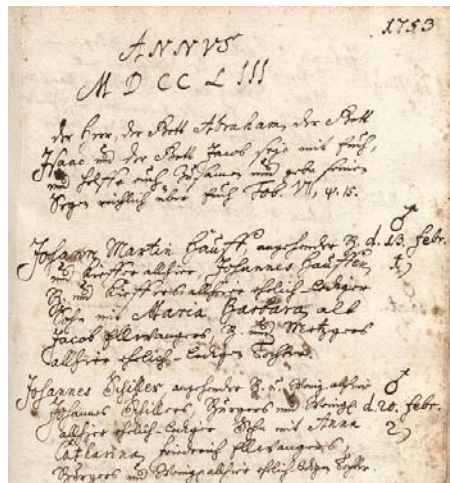 1753
ANNVS
MDCCLIII
der Herr, der Gott Abraham, der Gott
Isaac und der Gott Jacob seye mit Euch,
und helffe euch zusamen und gebe seinen
Segen reichlich über Euch Tob. VII, v. 15.
Johann Martin Hauff, angehender B. d. 13. Febr.
und Kieffer allhier, Johannes Hauffen,
B. und Kieffers allhier ehlich-lediger
Sohn mit Maria Barbara, alt
Jacob Ellwangers B. und Metzgers
allhier ehlich-ledigen Tochter.
Johannes Schiller angehender B. u. allhier
Johannes Schillers, Burgers und d. 20. Febr.
allhier ehlich-lediger Sohn mit Anna
Catharina, Friederich Ellwangers,
Burgers und allhier ehlich ledigen Tochter.